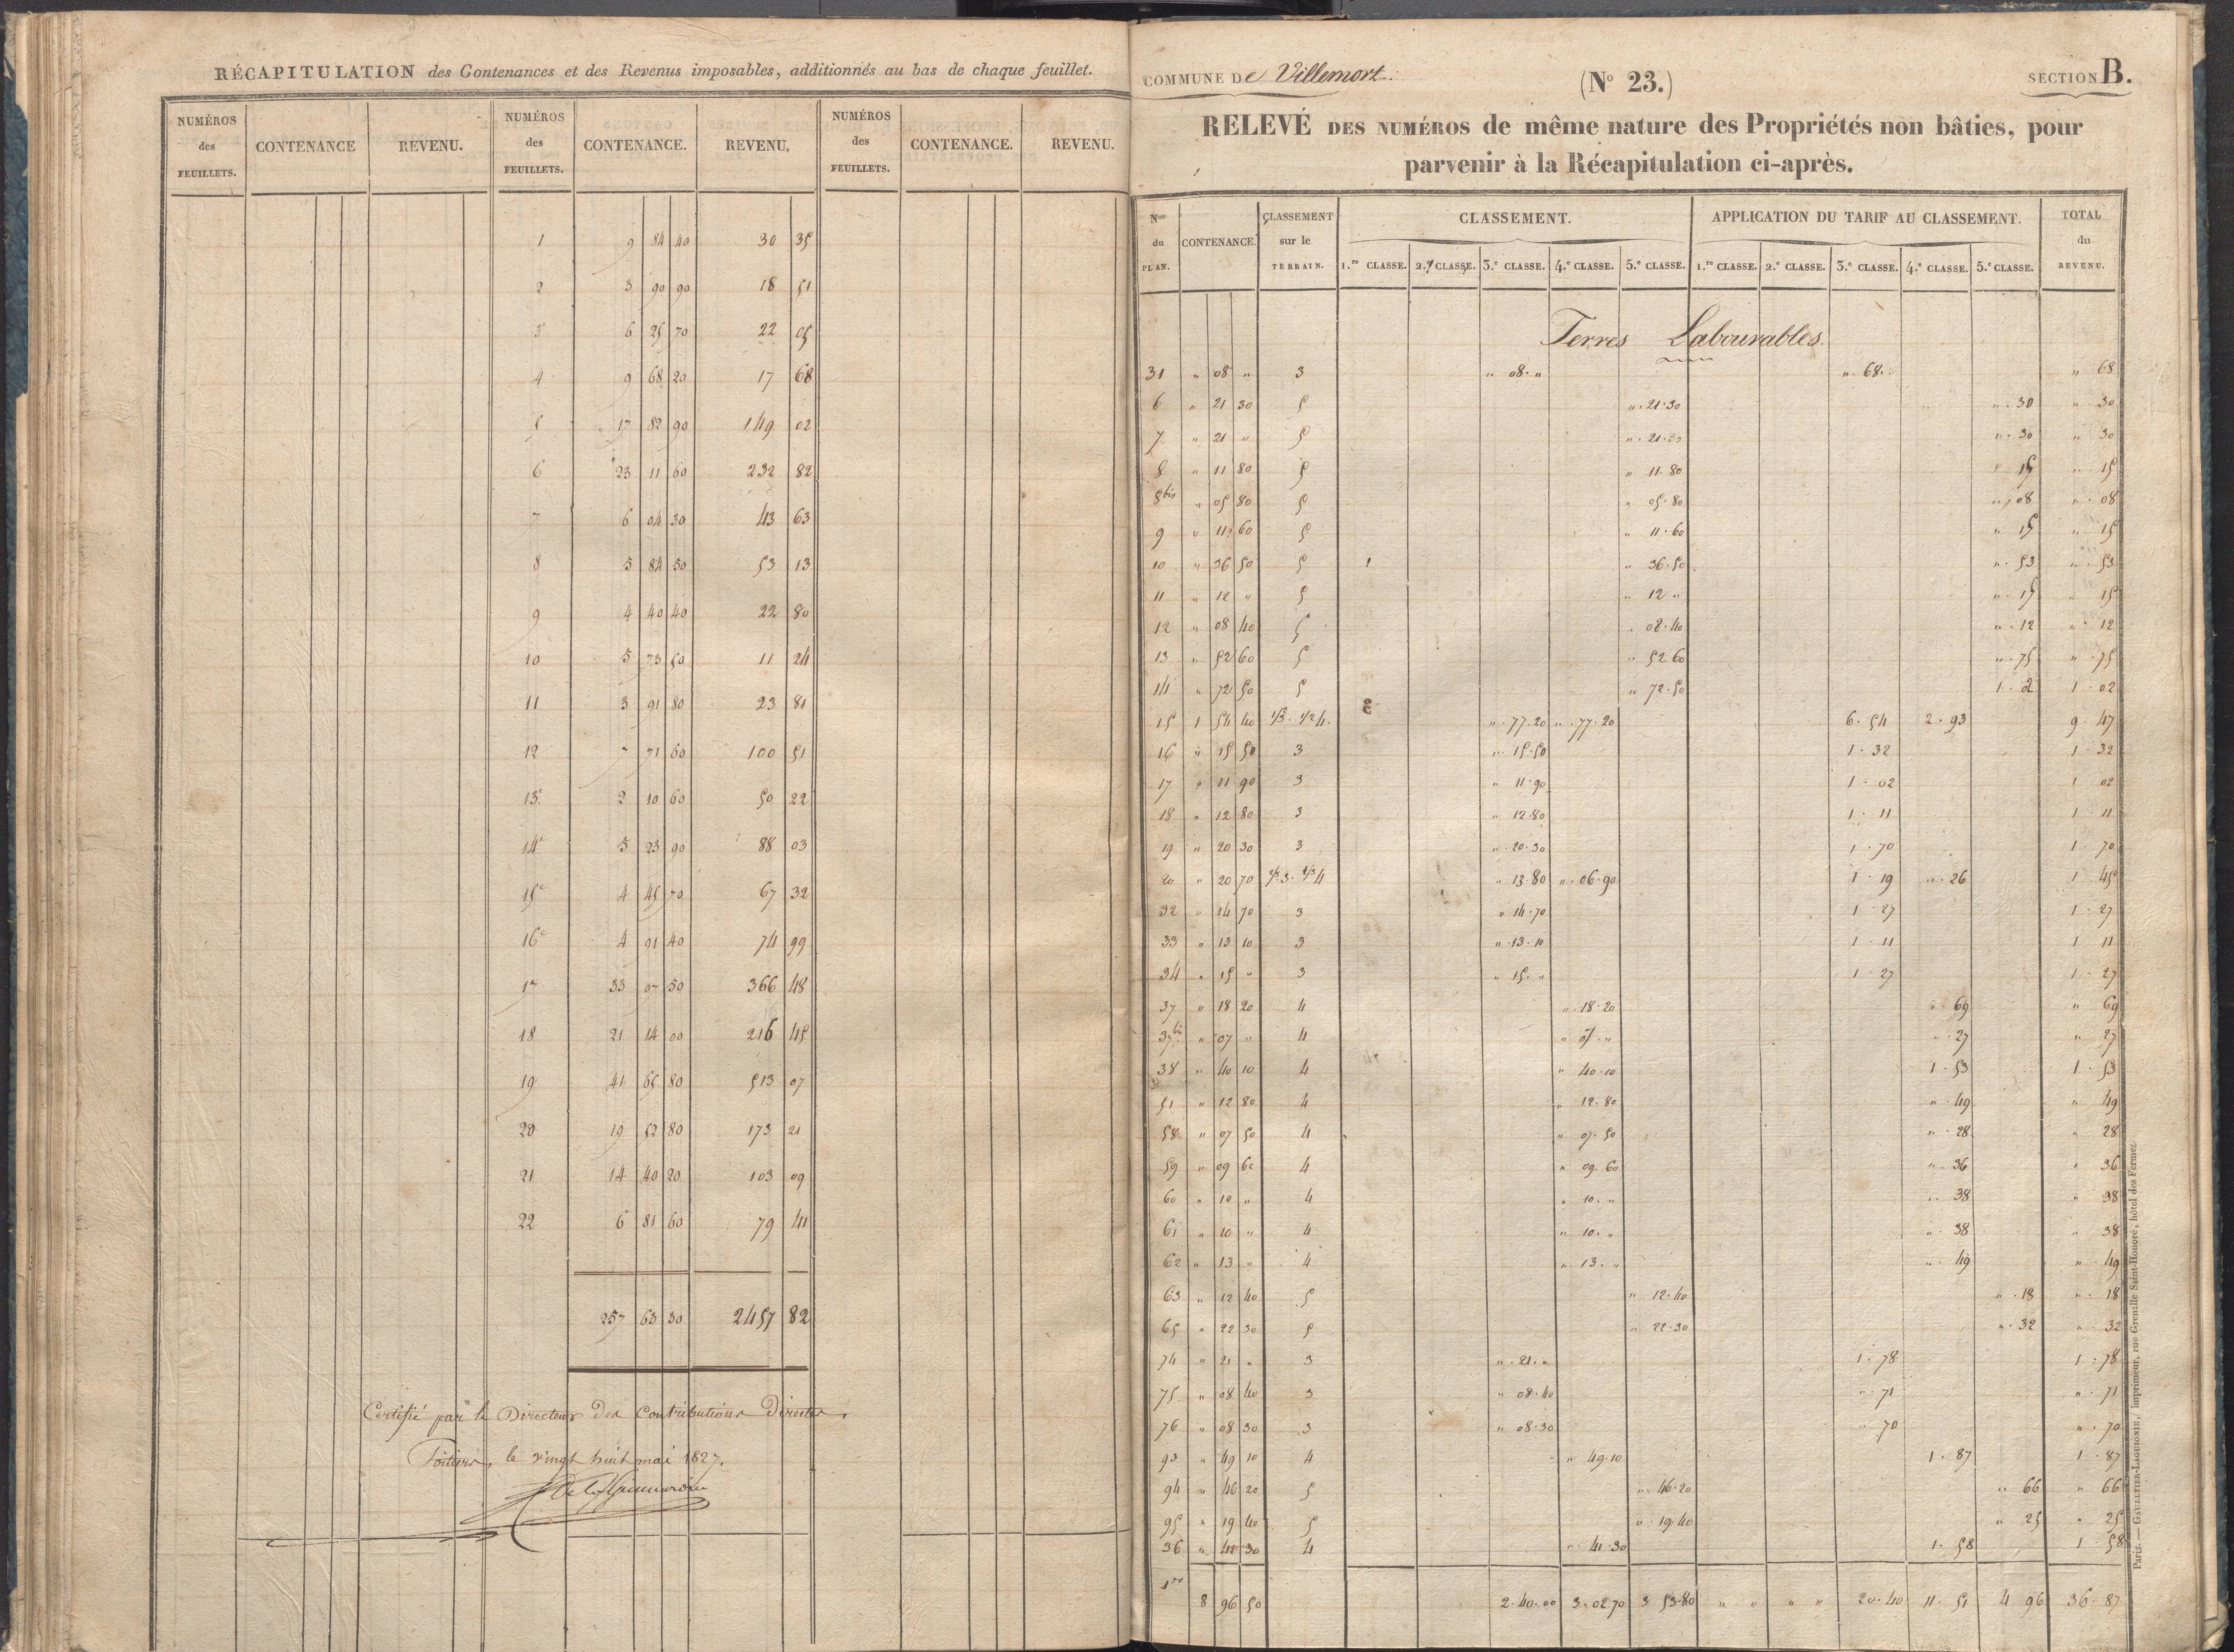 RÉCAPITULATION des Contenances et des Revenus imposables, additionnés au bas de chaque feuillet.
NUMÉROS des FEUILLETS. CONTENANCE REVENU. NUMÉROS des FEUILLETS. CONTENANCE. REVENU. NUMÉROS des FEUILLETS. CONTENANCE. REVENU.
1 9 84 40 30 35
2 3 90 90 18 51
3 6 25 70 22 05
4 9 68 20 17 68
5 17 82 90 149 02
6 23 11 60 232 82
7 6 04 30 43 63
8 5 84 50 53 13
9 4 40 40 22 80
10 5 73 50 11 24
11 3 91 80 23 81
12 7 71 60 100 51
13e 2 10 60 50 22
14e 5 23 90 88 03
15e 4 45 70 67 32
16e 4 91 40 74 99
17 33 07 50 366 48
18 21 14 00 216 45
19 41 65 80 513 07
20 19 52 80 173 21
21 14 40 20 103 09
22 6 81 60 79 41
257 63 30 2457 82
Certifié par le Directeur des Contributions Directes,
Poitiers, le vingt huit mai 1827.
COMMUNE De Villemort.
(No 23.)
SECTION B.
RELEVÉ DES NUMÉROS de même nature des Propriétés non bâties, pour
parvenir à la Récapitulation ci-après.
Nos du PLAN. CONTENANCE. CLASSEMENT sur le TERRAIN. CLASSEMENT. APPLICATION DU TARIF AU CLASSEMENT. TOTAL du REVENU.
1.re CLASSE. 2.e CLASSE. 3.e CLASSE. 4.e CLASSE. 5.e CLASSE. 1.re CLASSE. 2.e CLASSE. 3.e CLASSE. 4.e CLASSE. 5.e CLASSE.
Terres Labourables.
31 " 08 " 3 " 08. " ". 68. " 68
6 " 21 30 5 ". 21.30 ". 30 " 30
7 " 21 " 5 ". 21. ". 30 " 30
8 " 11 80 5 " 11.80 15 " 15
8bis " 05 80 5 " 05.80 ". 08 ". 08
9 " 11 60 5 " 11.60 " 15 " 15
10 " 36 50 5 " 36.50 ". 53 ". 53
11 " 12 " 5 " 12 " ". 15 " 15
12 " 08 40 5 . 08.40 ". 12 ". 12
13 " 52 60 5 " 52 60 ". 75 ". 75
14 " 72 50 5 " 72.50 1. 2 1. 02
15 1 54 40 1/2 3. 1/2 4. ". 77.20 ". 77.20 6. 54 2. 93 9. 47
16 " 15 50 3 ". 15.50 1. 32 1. 32
17 " 11 90 3 " 11.90 1. 02 1 02
18 " 12 80 3 " 12.80 1. 11 1. 11
19 " 20 30 3 ". 20.30 1. 70 1. 70
20 " 20 70 2/3 3. 1/3 4 " 13.80 ". 06.90 1. 19 ". 26 1 45
32 " 14 70 3 " 14.70 1. 27 1. 27
33 " 13 10 3 ". 13.10 1. 11 1 11
34 " 15 " 3 " 15. " 1 27 1. 27
37 " 18 20 4 ". 18.20 ". 69 " 69
37bis " 07 " 4 " 07. " ". 27 " 27
38 " 40 10 4 " 40.10 1. 53 1. 53
51 " 12 80 4 " 12.80 ". 49 " 49
58 " 07 50 4 " 07.50 ". 28 " 28
59 " 09 60 4 " 09.60 ". 36 " 36
60 " 10 " 4 " 10. " ". 38 " 38
61 " 10 " 4 " 10. " ". 38 " 38
62 " 13 " 4 " 13. " ". 49 ". 49
63 " 12 40 5 " 12.40 ". 18 ". 18
65 " 22 30 5 " 22.30 ". 32 ". 32
74 " 21 " 3 ". 21. " 1. 78 1. 78
75 " 08 40 3 " 08.40 ". 71 ". 71
76 " 08 30 3 " 08.30 " 70 ". 70
93 " 49 10 4 " 49.10 1. 87 1. 87
94 " 46 20 5 ". 46.20 " 66 " 66
95 " 19 40 5 " 19.40 " 25 " 25
36 " 41 30 4 ". 41.30 1. 58 1. 58
1re 8 96 50 2.40.00 3.02 70 3 53.80 " " " " 20.40 11. 51 4 96 36. 87
Paris.— GAULTIER-LAGUIONIE, imprimeur, rue Grenelle Saint-Honoré, hôtel des Fermes.